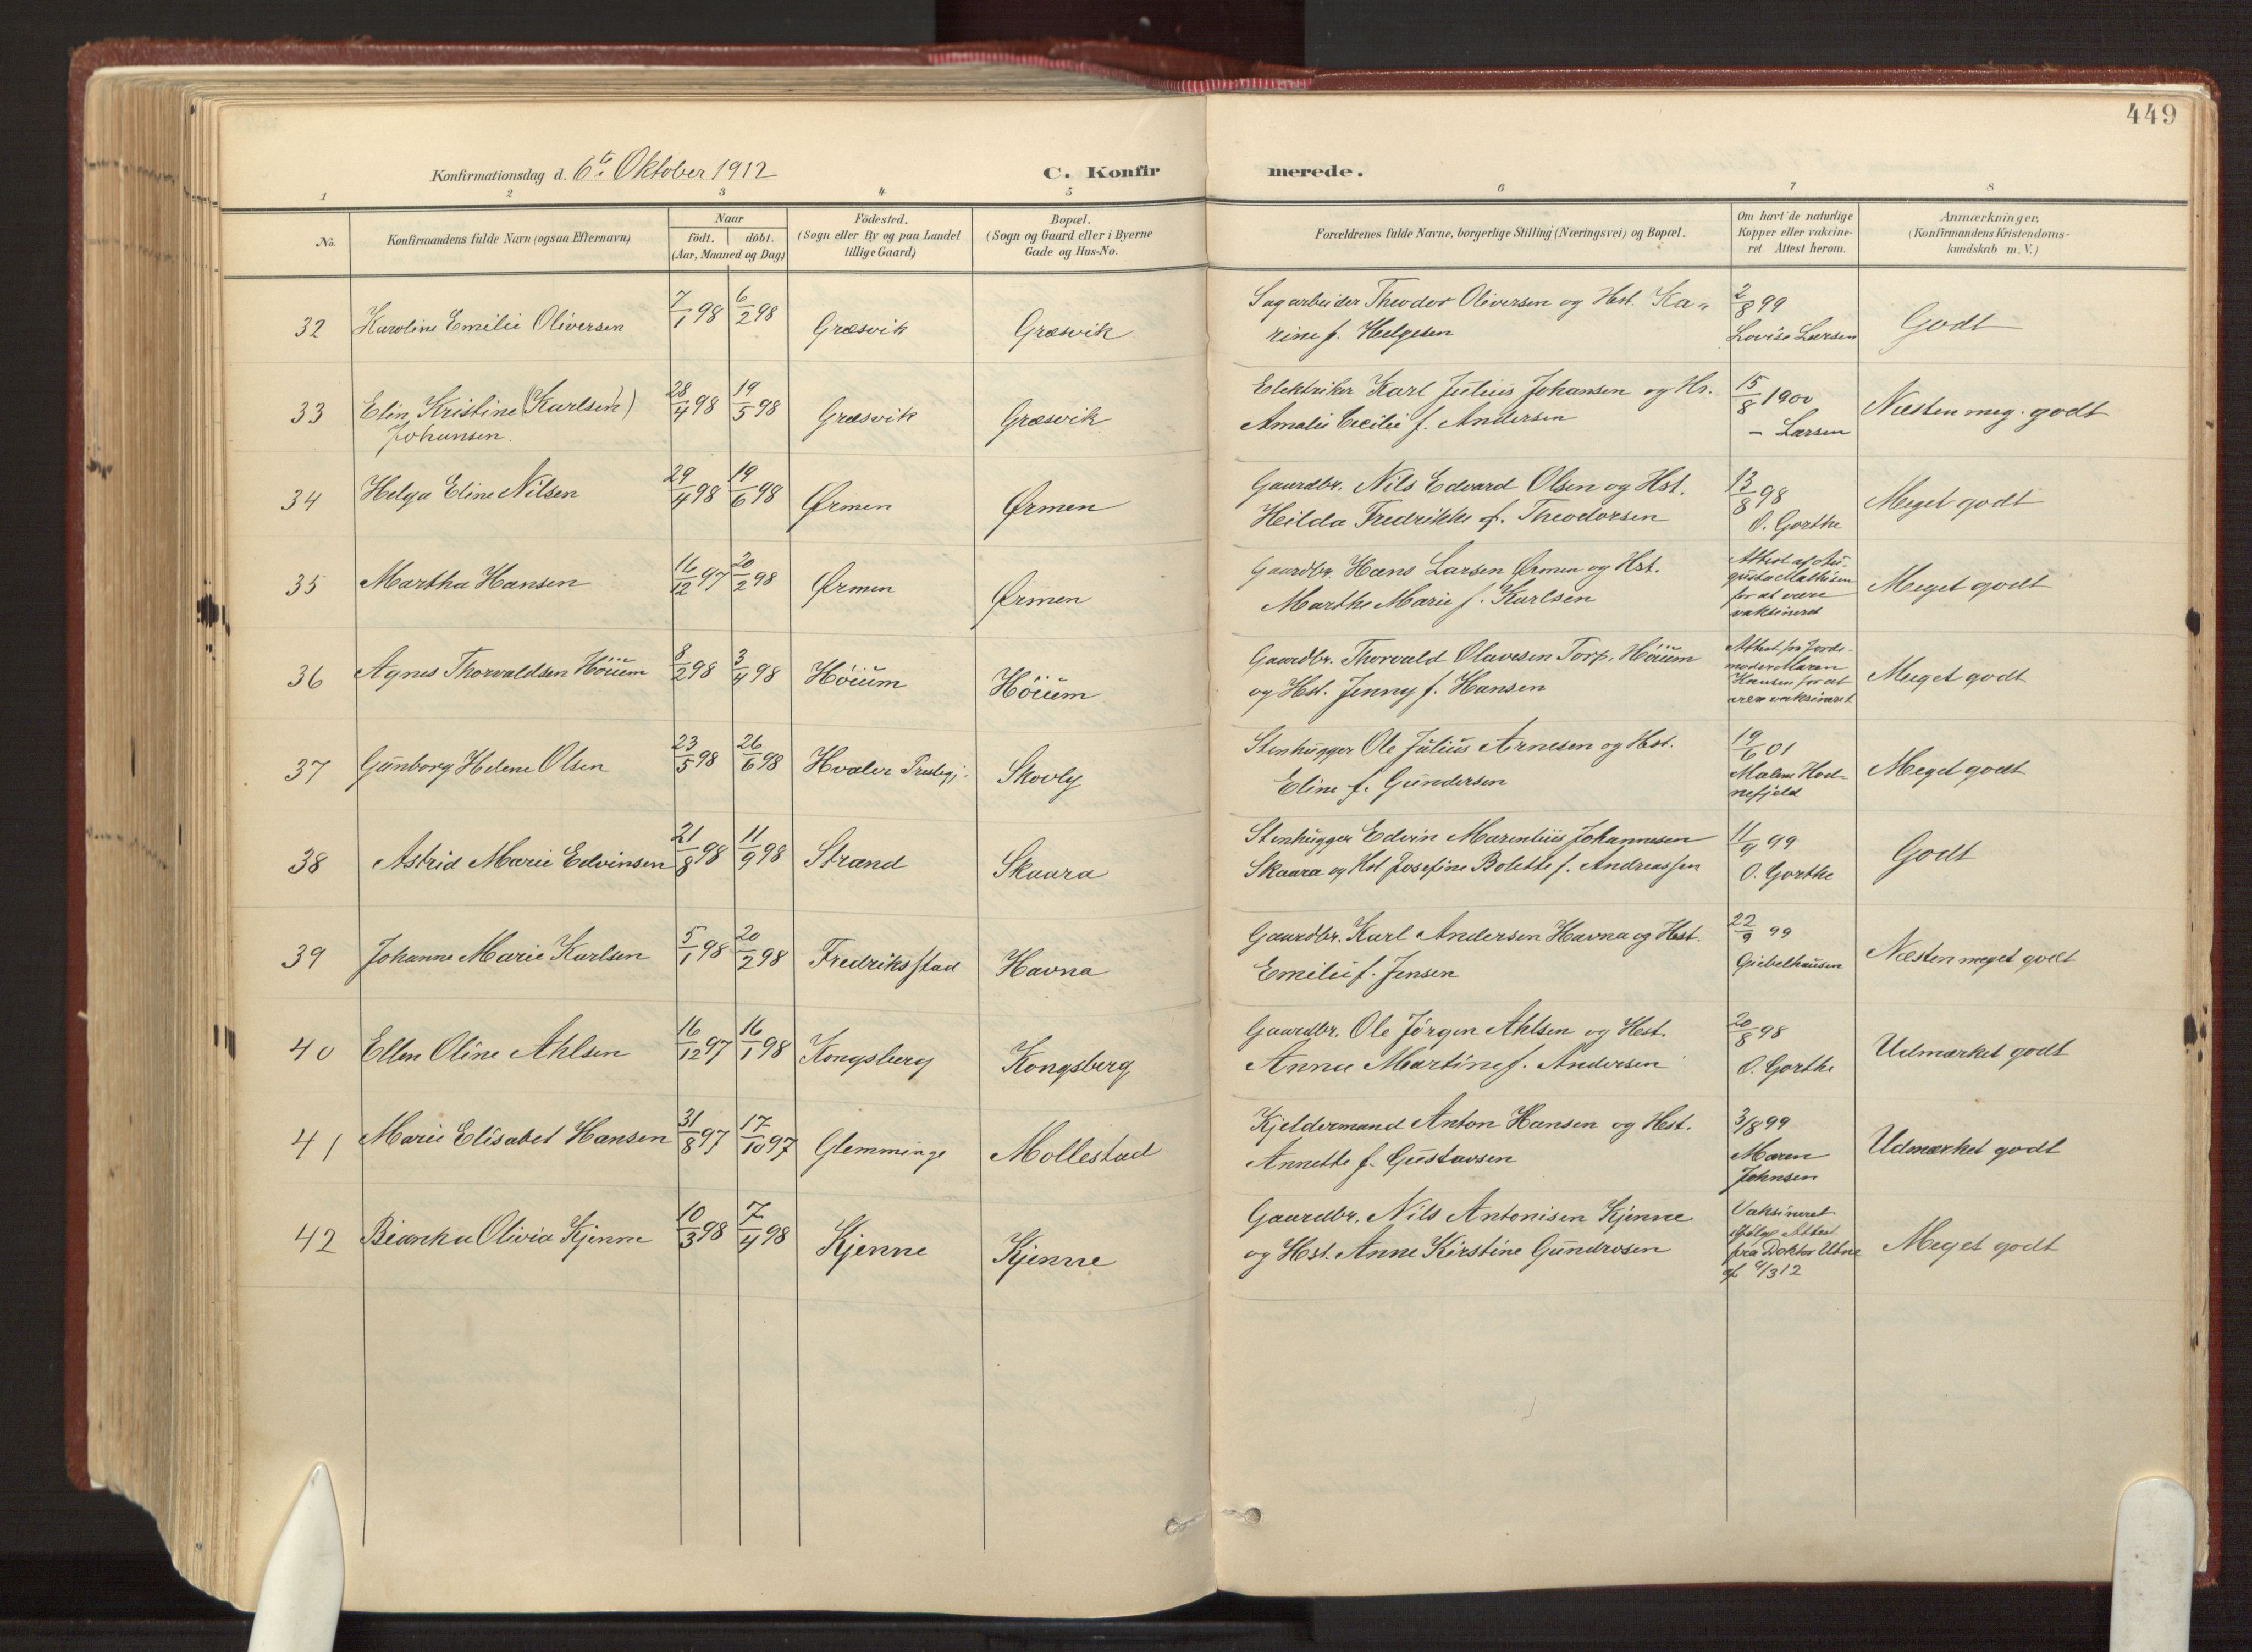 449
Konfirmationsdag d. 6te Oktober 1912
C. Konfirmerede.
1 2 3 4 5 6 7 8
No.
Konfirmandens fulde Navn (ogsaa Efternavn)
Naar
født. døbt.
(Aar, Maaned og Dag)
Födested.
(Sogn eller By og paa Landet
tillige Gaard)
Bopæl.
(Sogn og Gaard eller i Byerne
Gade og Hus-No.
Forældrenes fulde Navne, borgerlige Stilling (Næringsvei) og Bopæl.
Om havt de naturlige
Kopper eller vakcine-
ret Attest herom.
Anmærkninger.
(Konfirmandens Kristendoms-
kundskab m. V.)
32 Karoline Emilie Oliversen 7/1 98 6/2 98 Græsvik Græsvik
Sagarbeider Theodor Oliversen og Hst. Ka„
rine f. Helgesen
2/8 99
Lovise Larsen
Godt
33 Elin Kristine (Karlsen)
Johansen.
28/4 98 19/5 98 Græsvik Græsvik
Elektriker Karl Julius Johansen og Hs.
Amalie Cecilie f. Andersen
15/8 1900
– Larsen
Næsten meg. godt
34 Helga Eline Nilsen 29/4 98 19/6 98 Ørmen Ørmen
Gaardbr. Nils Edvard Olsen og Hst.
Hilda Fredrikke f. Theodorsen
13/8 98
O. Gorthe
Meget godt
35 Martha Hansen 16/12 97 20/2 98 Ørmen Ørmen
Gaardbr. Hans Larsen Ørmen og Hst.
Marthe Marie f. Karlsen
Attest af Au-
gusta Mathisen
for at være
vaksineret
Meget godt
36 Agnes Thorvaldsen Høium 8/2 98 3/4 98 Høium Høium
Gaardbr. Thorvald Olavesen Torp, Høium
og Hst. Jenny f. Hansen
Attest fra Jorde-
moder Maren
Hansen for at
være vaksineret
Meget godt
37 Gunborg Helene Olsen 23/5 98 26/6 98 Hvaler Prestegj. Skovly
Stenhugger Ole Julius Arnesen og Hst.
Eline f. Gundersen
19/6 01
Malene Hod-
nefjeld
Meget godt
38 Astrid Marie Edvinsen 21/8 98 11/9 98 Strand Skaara
Stenhugger Edvin Marentius Johannesen
Skaara og Hst Josefine Bolette f. Andreassen
11/9 99
O. Gorthe
Godt
39 Johanne Marie Karlsen 5/1 98 20/2 98 Fredriksstad Havna
Gaardbr. Karl Andersen Havna og Hst.
Emilie f. Jensen
22/9 99
Giebelhausen
Næsten meget godt
40 Ellen Oline Ahlsen 16/12 97 16/1 98 Kongsberg Kongsberg
Gaardbr. Ole Jørgen Ahlsen og Hst.
Anna Martine f. Andersen
20/8 98
O. Gorthe
Udmærket godt
41 Marie Elisabet Hansen 31/8 97 17/10 97 Glemminge Mollestad
Kjeldermand Anton Hansen og Hst.
Annette f. Gustavsen
3/8 99
Maren
Johnsen
Udmærket godt
42 Bianka Olivia Kjenne 10/3 98 7/4 98 Kjenne Kjenne
Gaardbr. Nils Antonisen Kjenne
og Hst. Anne Kirstine Gundrosen
Vaksineret
ifølge Attest
fra Doktor Utne
af /3 12
Meget godt